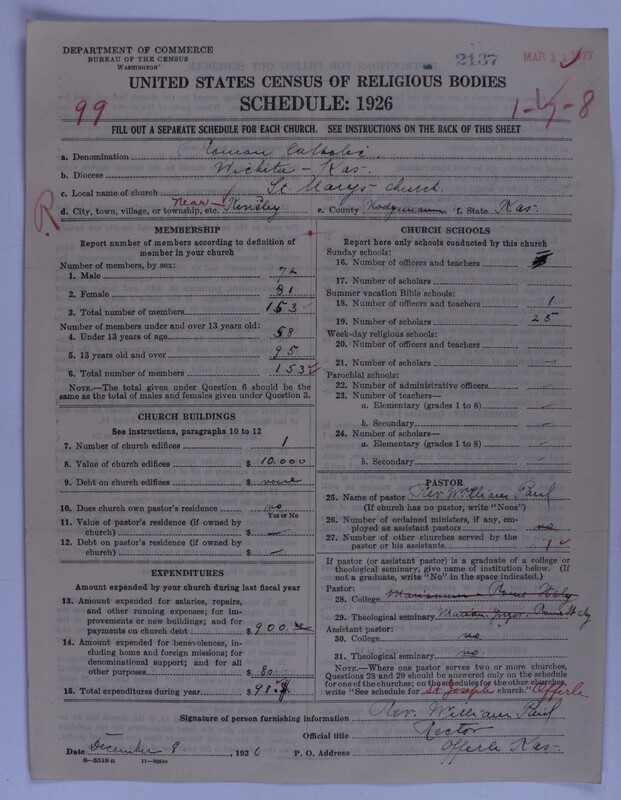 DEPARTMENT OF COMMERCE
BUREAU OF THE CENSUS
WASHINGTON
2137
MAR 1 1927
UNITED STATES CENSUS OF RELIGIOUS BODIES
SCHEDULE: 1926
99
1-7-8
FILL OUT A SEPARATE SCHEDULE FOR EACH CHURCH. SEE INSTRUCTIONS ON THE BACK OF THIS SHEET
a. Denomination Roman Catholic
b. Diocese Wichita - Kas.
c. Local name of church St Marys church
d. City, town, village, or township, etc. Near Kinsley e. County Hodgemann f. State Kas.
R
MEMBERSHIP
Report number of members according to definition of member in your church
Number of members, by sex:
1. Male 72
2. Female 81
3. Total number of members 153
Number of members under and over 13 years old:
4. Under 13 years of age 58
5. 13 years old and over 95
6. Total number of members 153
NOTE.—The total given under Question 6 should be the
same as the total of males and females given under Question 3.
CHURCH BUILDINGS
See instructions, paragraphs 10 to 12
7. Number of church edifices 1
8. Value of church edifices $ 10.000
9. Debt on church edifices $ none
10. Does church own pastor's residence no
Yes or No
11. Value of pastor's residence (if owned by
church) $ —
12. Debt on pastor's residence (if owned by
church) $ —
EXPENDITURES
Amount expended by your church during last fiscal year
13. Amount expended for salaries, repairs,
and other running expenses; for im-
provements or new buildings; and for
payments on church debt $ 900.
14. Amount expended for benevolences, in-
cluding home and foreign missions; for
denominational support; and for all
other purposes $ 80.
15. Total expenditures during year $ 98
CHURCH SCHOOLS
Report here only schools conducted by this church
Sunday schools:
16. Number of officers and teachers
17. Number of scholars
Summer vacation Bible schools:
18. Number of officers and teachers 1
19. Number of scholars 25
Week-day religious schools:
20. Number of officers and teachers
21. Number of scholars
Parochial schools:
22. Number of administrative officers
23. Number of teachers—
a. Elementary (grades 1 to 8)
b. Secondary
24. Number of scholars—
a. Elementary (grades 1 to 8)
b. Secondary
PASTOR
25. Name of pastor Rev. William Paul
(If church has no pastor, write "None")
26. Number of ordained ministers, if any, em-
ployed as assistant pastors no
27. Number of other churches served by the
pastor or his assistants 1
If pastor (or assistant pastor) is a graduate of a college or
theological seminary, give name of institution below. (If
not a graduate, write "No" in the space indicated.)
Pastor:
28. College Rome Italy
29. Theological seminary Rome Italy
Assistant pastor:
30. College no
31. Theological seminary no.
NOTE.—Where one pastor serves two or more churches,
Questions 28 and 29 should be answered only on the schedule
for one of the churches; on the schedules for the other churches,
write "See schedule for St. Joseph church." Offerle
Signature of person furnishing information Rev. William Paul
Official title Rector
Date December 8, 1926 P. O. Address Offerle Kas.
8—5518 a